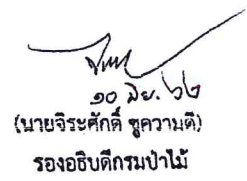 ๑๐ มิ.ย. ๖๒
(นายจิระศักดิ์ ชูความดี)
รองอธิบดีกรมป่าไม้